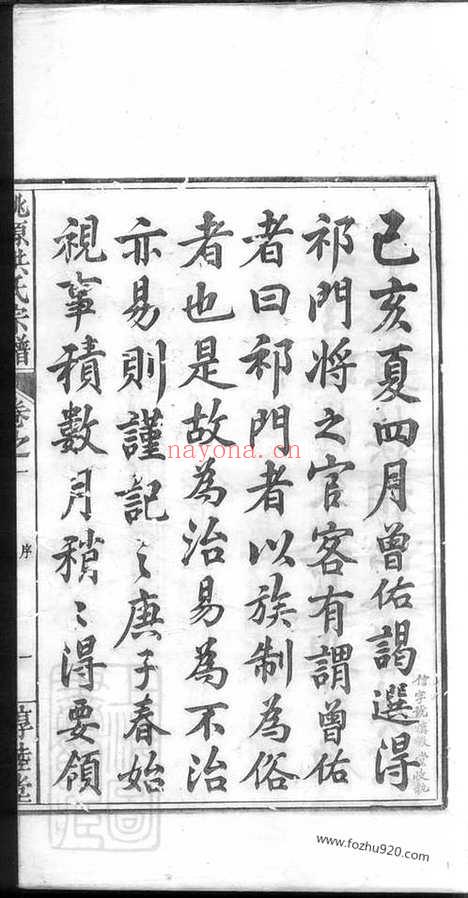 己亥夏四月曾佑謁選得
祁門將之官客有謂曾佑
者曰祁門者以族制為俗
者也是故為治易為不治
亦易則謹記之庚子春始
視事積數月稍〻得要領
桃源洪氏宗譜
卷之一
序
一
惇睦堂
nayona.cn
www.fozhu920.com